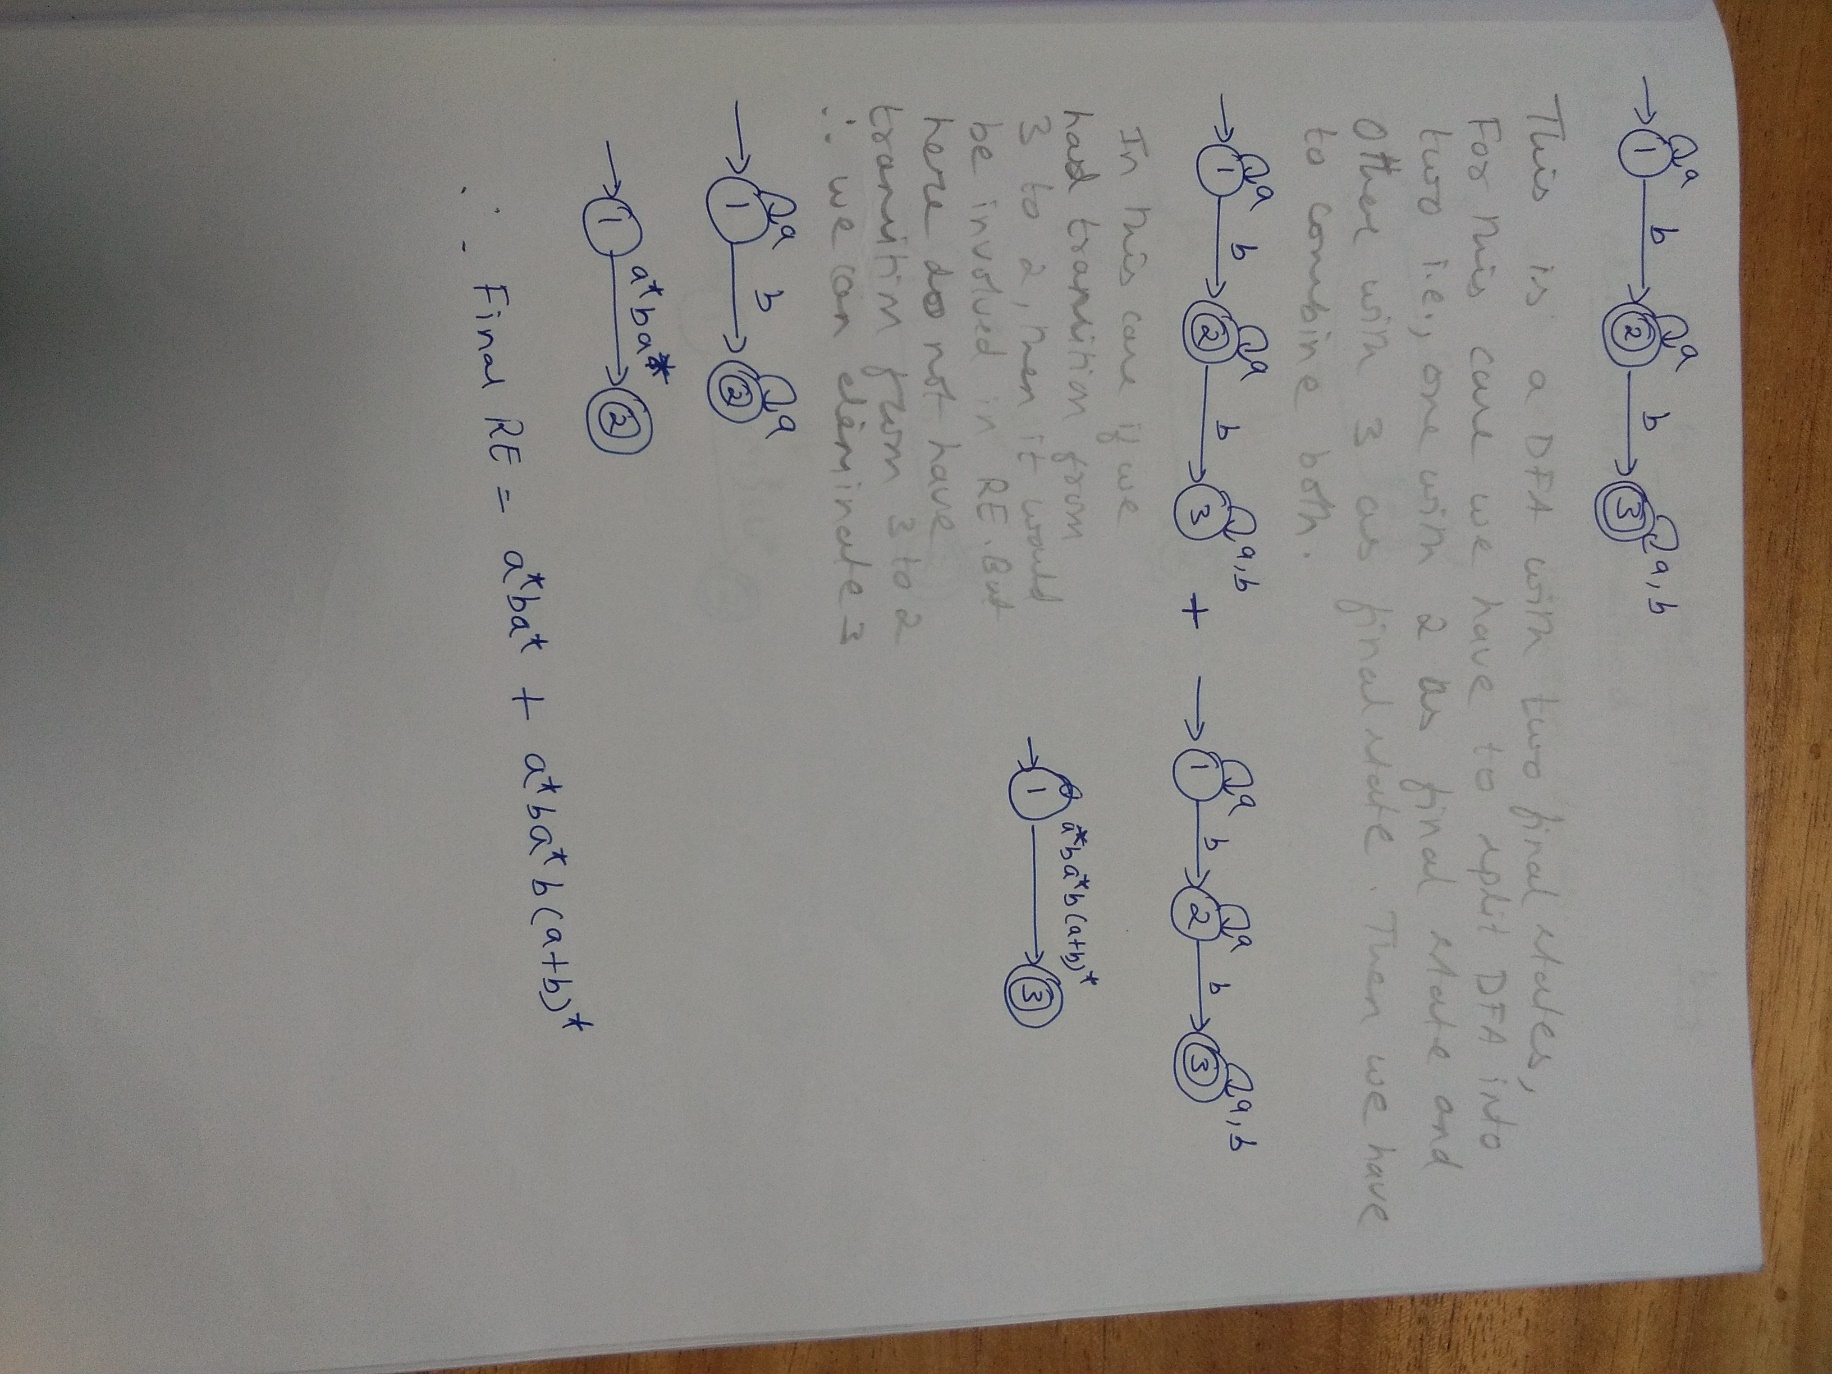 → 1 a b 2 a b 3 a, b
This is a DFA with two final states,
For this case we have to split DFA into
two i.e., one with 2 as final state and
other with 3 as final state. Then we have
to combine both.
→ 1 a b 2 a b 3 a, b + → 1 a b 2 a b 3 a, b
In this case if we
had transition from
3 to 2, then it would
be involved in RE. But
here do not have
transition from 3 to 2
∴ we can eleminate 3
→ 1 a*ba*b(a+b)* 3
→ 1 a b 2 a
→ 1 a*ba* 2
∴ Final RE = a*ba* + a*ba*b(a+b)*